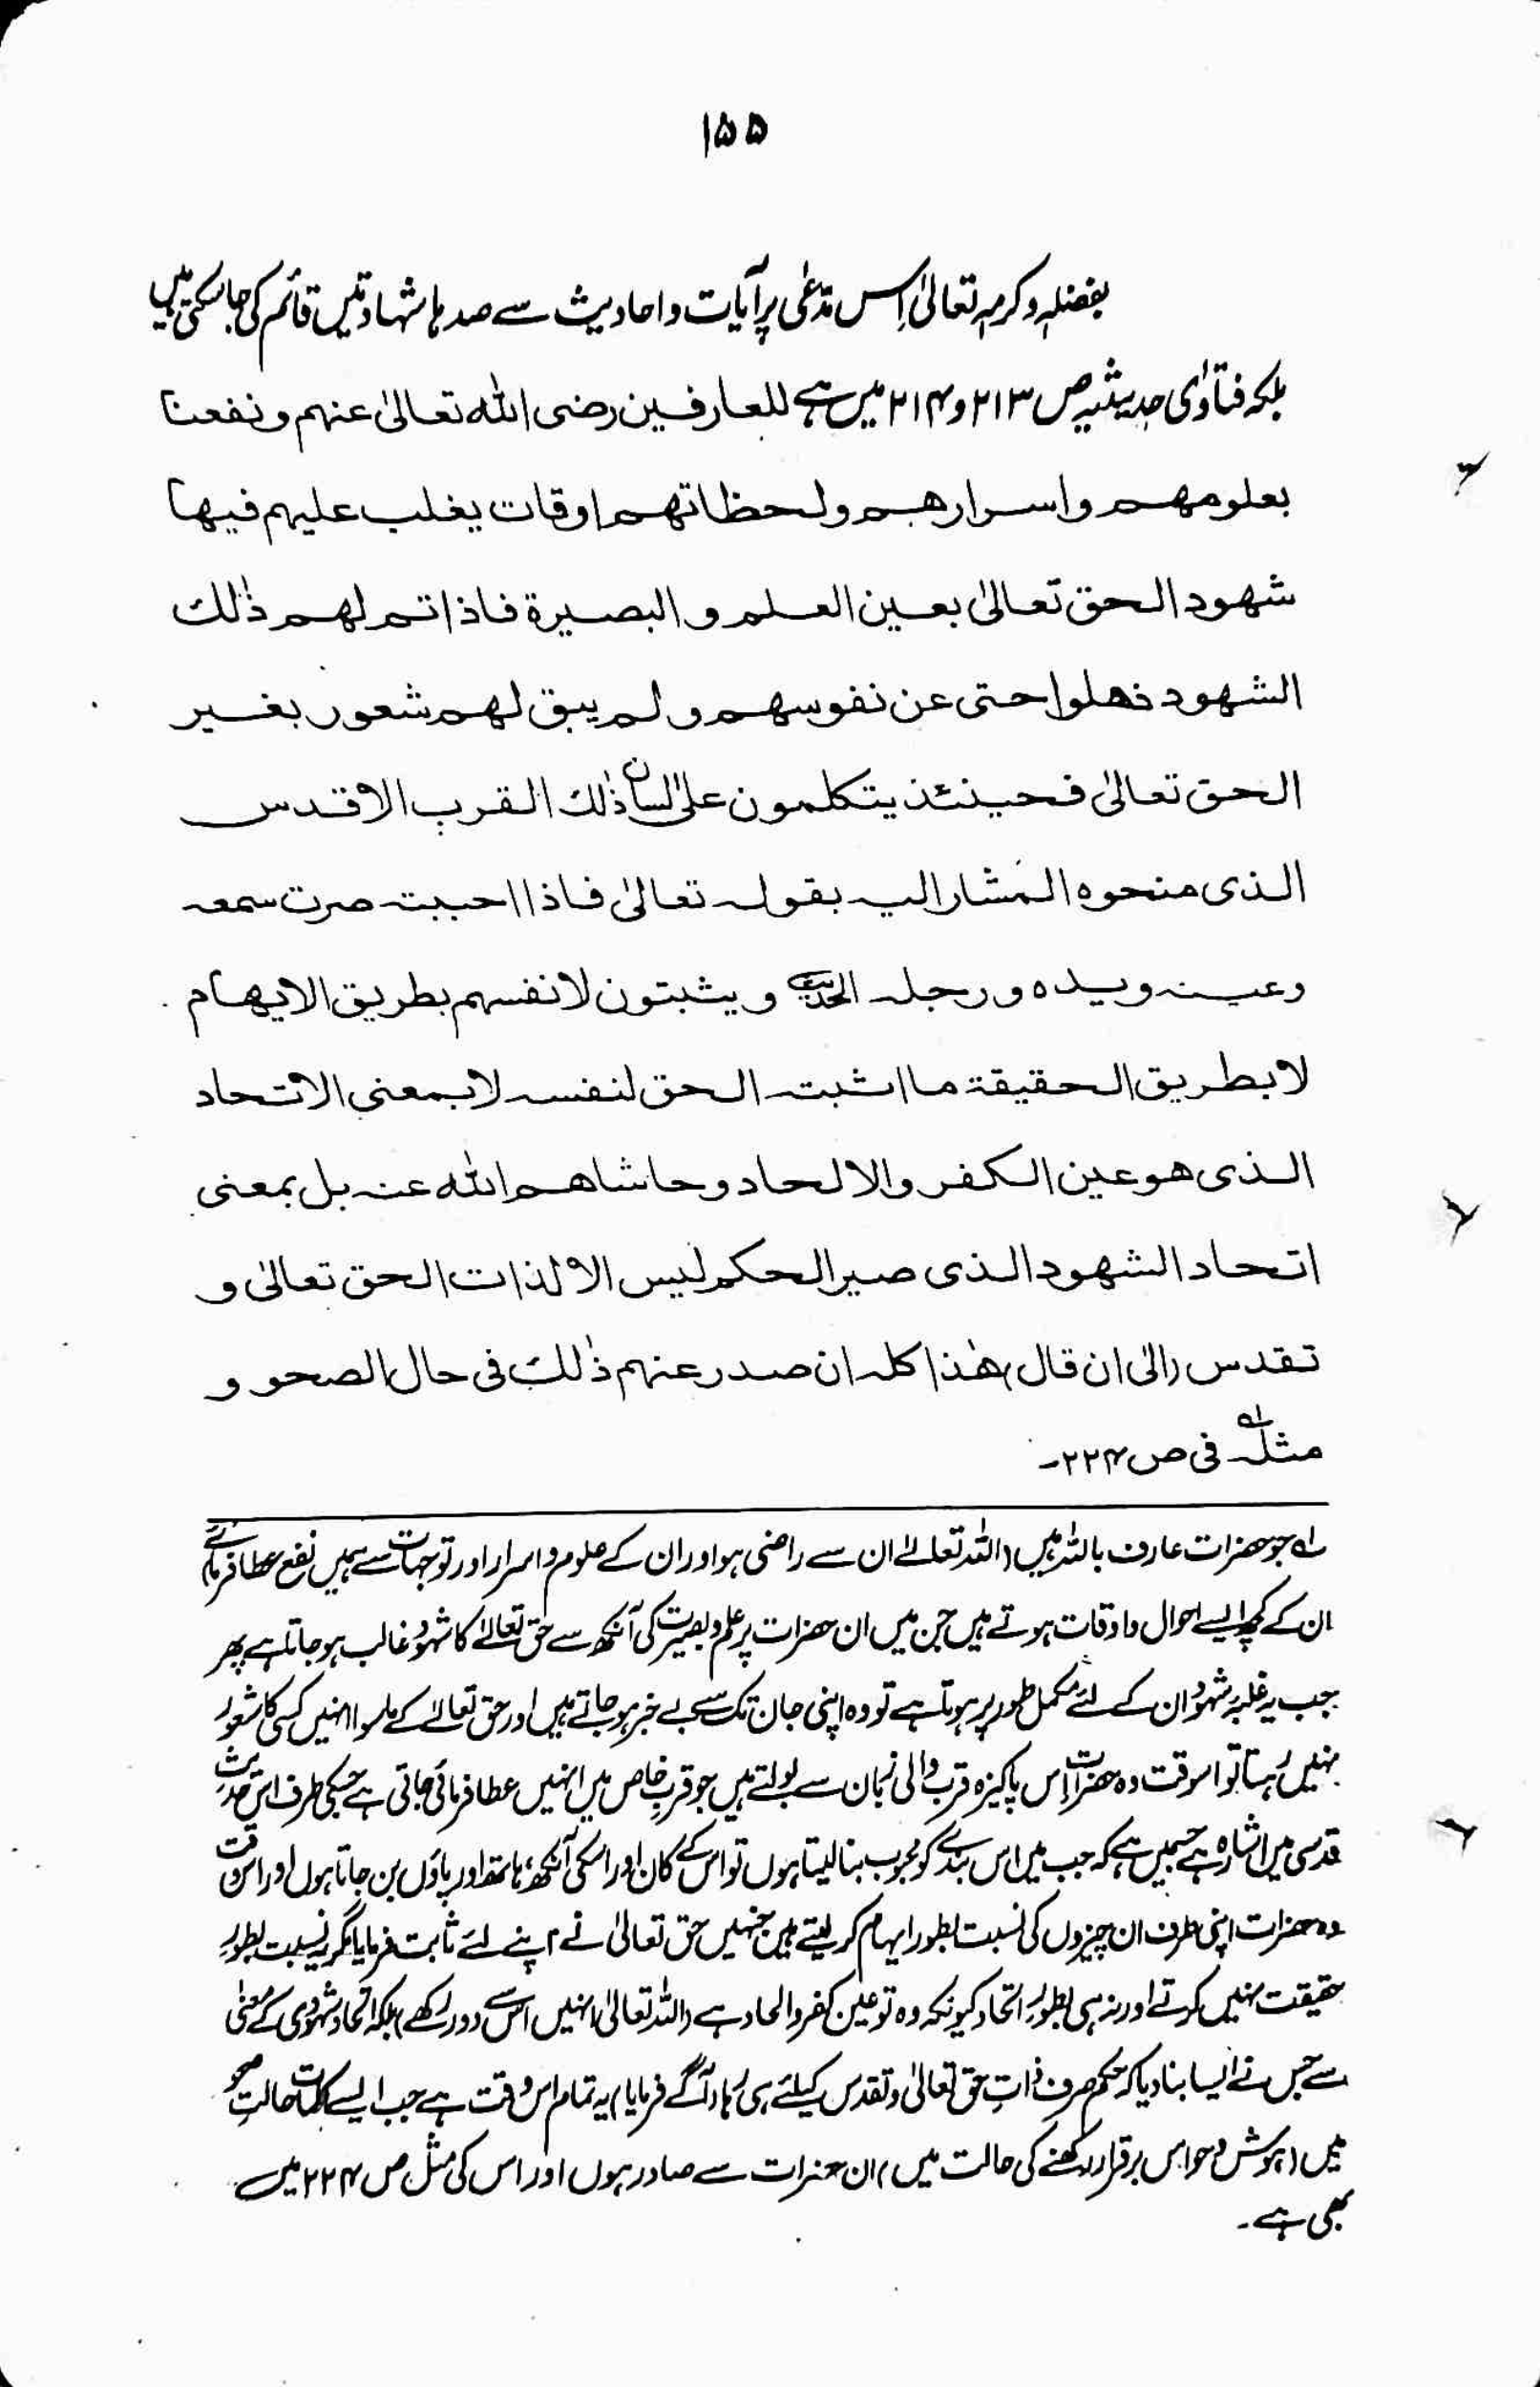 ۱۵۵
بفضلہ وکرمہ تعالیٰ اِس مدّعٰی پر آیات و احادیث سے صدہا شہادتیں قائم کی جاسکتی ہیں
بلکہ فتاوٰی حدیثیہ ص ۲۱۳ و ۲۱۴ میں ہے للعارفین رضی اللہ تعالیٰ عنہم و نفعنا
بعلومھم واسرارھم ولحظاتھم اوقات یغلب علیہم فیھا
شھود الحق تعالیٰ بعین العلم و البصیرة فاذا تم لھم ذٰلك
الشھود ذھلوا حتی عن نفوسھم و لم یبق لھم شعور بغیر
الحق تعالیٰ فحینئذ یتکلمون علیٰ لسان ذٰلك القرب الاقدس
الذی منحوہ المشار الیہ بقولہ تعالیٰ فاذا احببتہ صرت سمعہ
وعینہ ویدہ و رجلہ الحدیث و یثبتون لانفسہم بطریق الایھام
لا بطریق الحقیقة ما اثبتہ الحق لنفسہ لا بمعنی الاتحاد
الذی ھو عین الکفر والالحاد وحاشاھم اللہ عنہ بل بمعنی
اتحاد الشھود الذی صیر الحکم لیس الا لذات الحق تعالیٰ و
تقدس (الیٰ ان قال) ھٰذا کلہ ان صدر عنہم ذٰلك فی حال الصحو و
مثلہ لہ فی ص ۲۲۴۔
لہ جو حضرات عارف باللہ ہیں (اللہ تعالےٰ ان سے راضی ہو اور ان کے علوم و اسرار اور توجہات سے ہمیں نفع عطا فرمائے)
ان کے کچھ ایسے احوال و اوقات ہوتے ہیں جن میں ان حضرات پر علم و بصیرت کی آنکھ سے حق تعالےٰ کا شہود غالب ہو جاتا ہے پھر
جب یہ غلبہ شہود ان کے لئے مکمل طور پر ہوتا ہے تو وہ اپنی جان تک سے بے خبر ہو جاتے ہیں اور حق تعالےٰ کے ماسوا انہیں کسی کا شعور
نہیں رہتا تو اسوقت وہ حضرات اِس پاکیزہ قرب والی زبان سے بولتے ہیں جو قربِ خاص میں انہیں عطا فرمائی جاتی ہے جسکی طرف اس حدیث
قدسی میں اشارہ ہے جسمیں ہے کہ جب میں اس بندے کو محبوب بنا لیتا ہوں تو اس کے کان اور اسکی آنکھ، ہاتھ اور پاؤں بن جاتا ہوں اور اس وقت
وہ حضرات اپنی طرف ان چیزوں کی نسبت بطور ایہام کر لیتے ہیں جنہیں حق تعالیٰ نے اپنے لئے ثابت فرمایا مگر یہ نسبت بطورِ
حقیقت نہیں کرتے اور نہ ہی بطورِ اتحاد کیونکہ وہ تو عین کفر و الحاد ہے (اللہ تعالیٰ انہیں اس سے دور رکھے) بلکہ اتحادِ شہودی کے معنٰی
سے جس نے ایسا بنا دیا کہ حکم صرف ذاتِ حق تعالیٰ و تقدس کیلئے ہی رہا (آگے فرمایا) یہ تمام اس وقت ہے جب ایسے کلمات حالتِ صحو
میں (ہوش و حواس برقرار رکھنے کی حالت میں) ان حضرات سے صادر ہوں اور اس کی مثل ص ۲۲۴ میں
بھی ہے۔